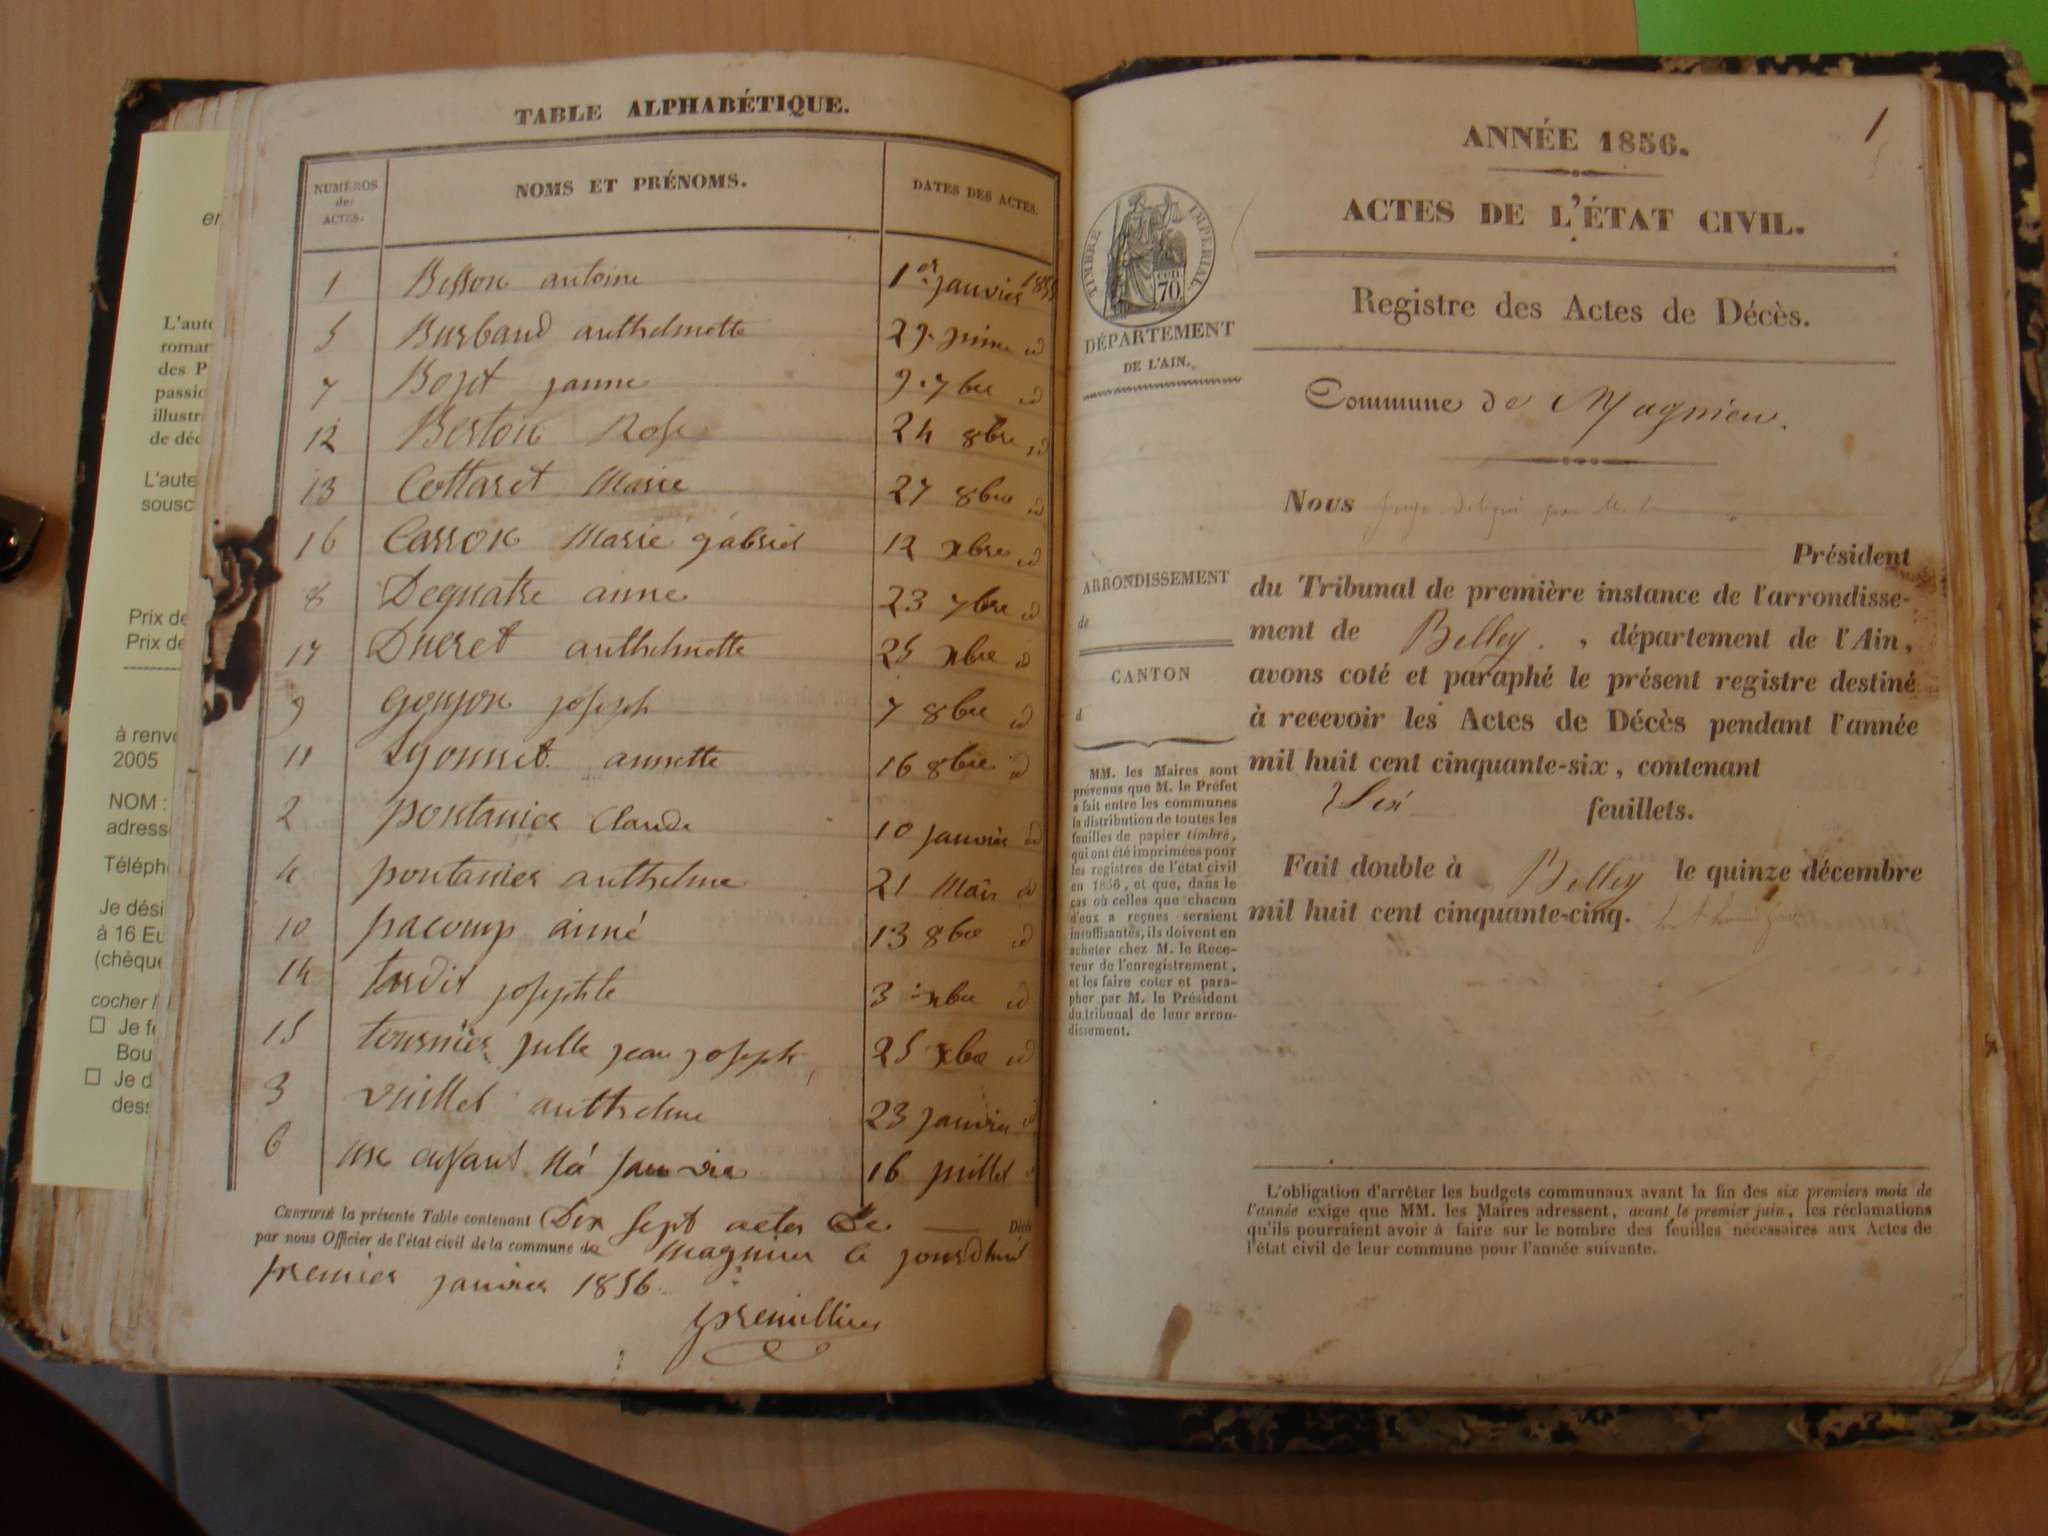 TABLE ALPHABÉTIQUE.
NUMÉROS des ACTES.
NOMS ET PRÉNOMS.
DATES DES ACTES.
1 Besson antoine 1er janvier 1855
5 Burbaud anthelmette 29 juin id
7 Bojet janne 9 7bre id
12 Berton Rose 24 8bre id
13 Cottaret Marie 27 8bre id
16 Carron Marie gabriel 12 xbre id
8 Dequatre anne 23 7bre id
17 Ducret anthelmette 25 xbre id
9 goujon joseph 7 8bre id
11 Lyonnet annette 16 8bre id
2 pontanier Claude 10 janvier id
4 pontanier anthelme 21 Mars id
10 pacomp aimé 13 8bre id
14 tardit josephte 3 xbre id
15 tournier jean joseph 25 xbre id
3 vuillet anthelme 23 janvier id
6 un enfant Né sans vie 16 juillet
CERTIFIÉ la présente Table contenant Dix sept actes de Décès
par nous Officier de l'état civil de la commune de Magnieu le jourdhui
premier janvier 1856
1
ANNÉE 1856.
ACTES DE L'ÉTAT CIVIL.
TIMBRE IMPÉRIAL
CEN 70
DÉPARTEMENT
DE L'AIN.
Registre des Actes de Décès.
Commune de Magnieu.
Nous juge délégué par M. le
Président
du Tribunal de première instance de l'arrondisse-
ment de Belley. , département de l'Ain,
avons coté et paraphé le présent registre destiné
à recevoir les Actes de Décès pendant l'année
mil huit cent cinquante-six, contenant
Six feuillets.
Fait double à Belley le quinze décembre
mil huit cent cinquante-cinq.
ARRONDISSEMENT
de
CANTON
d
MM. les Maires sont
prévenus que M. le Préfet
a fait entre les communes
la distribution de toutes les
feuilles de papier timbré,
qui ont été imprimées pour
les registres de l'état civil
en 1856, et que, dans le
cas où celles que chacun
d'eux a reçues seraient
insuffisantes, ils doivent en
acheter chez M. le Rece-
veur de l'enregistrement,
et les faire coter et para-
pher par M. le Président
du tribunal de leur arron-
dissement.
L'obligation d'arrêter les budgets communaux avant la fin des six premiers mois de
l'année exige que MM. les Maires adressent, avant le premier juin, les réclamations
qu'ils pourraient avoir à faire sur le nombre des feuilles nécessaires aux Actes de
l'état civil de leur commune pour l'année suivante.
en
L'aute
roman
des P
passio
illustr
de déc
L'aute
sousc
Prix de
Prix de
à renvo
2005
NOM :
adress
Téléph
Je dési
à 16 Eu
(chèque
cocher l
Je
Bou
Je d
dess